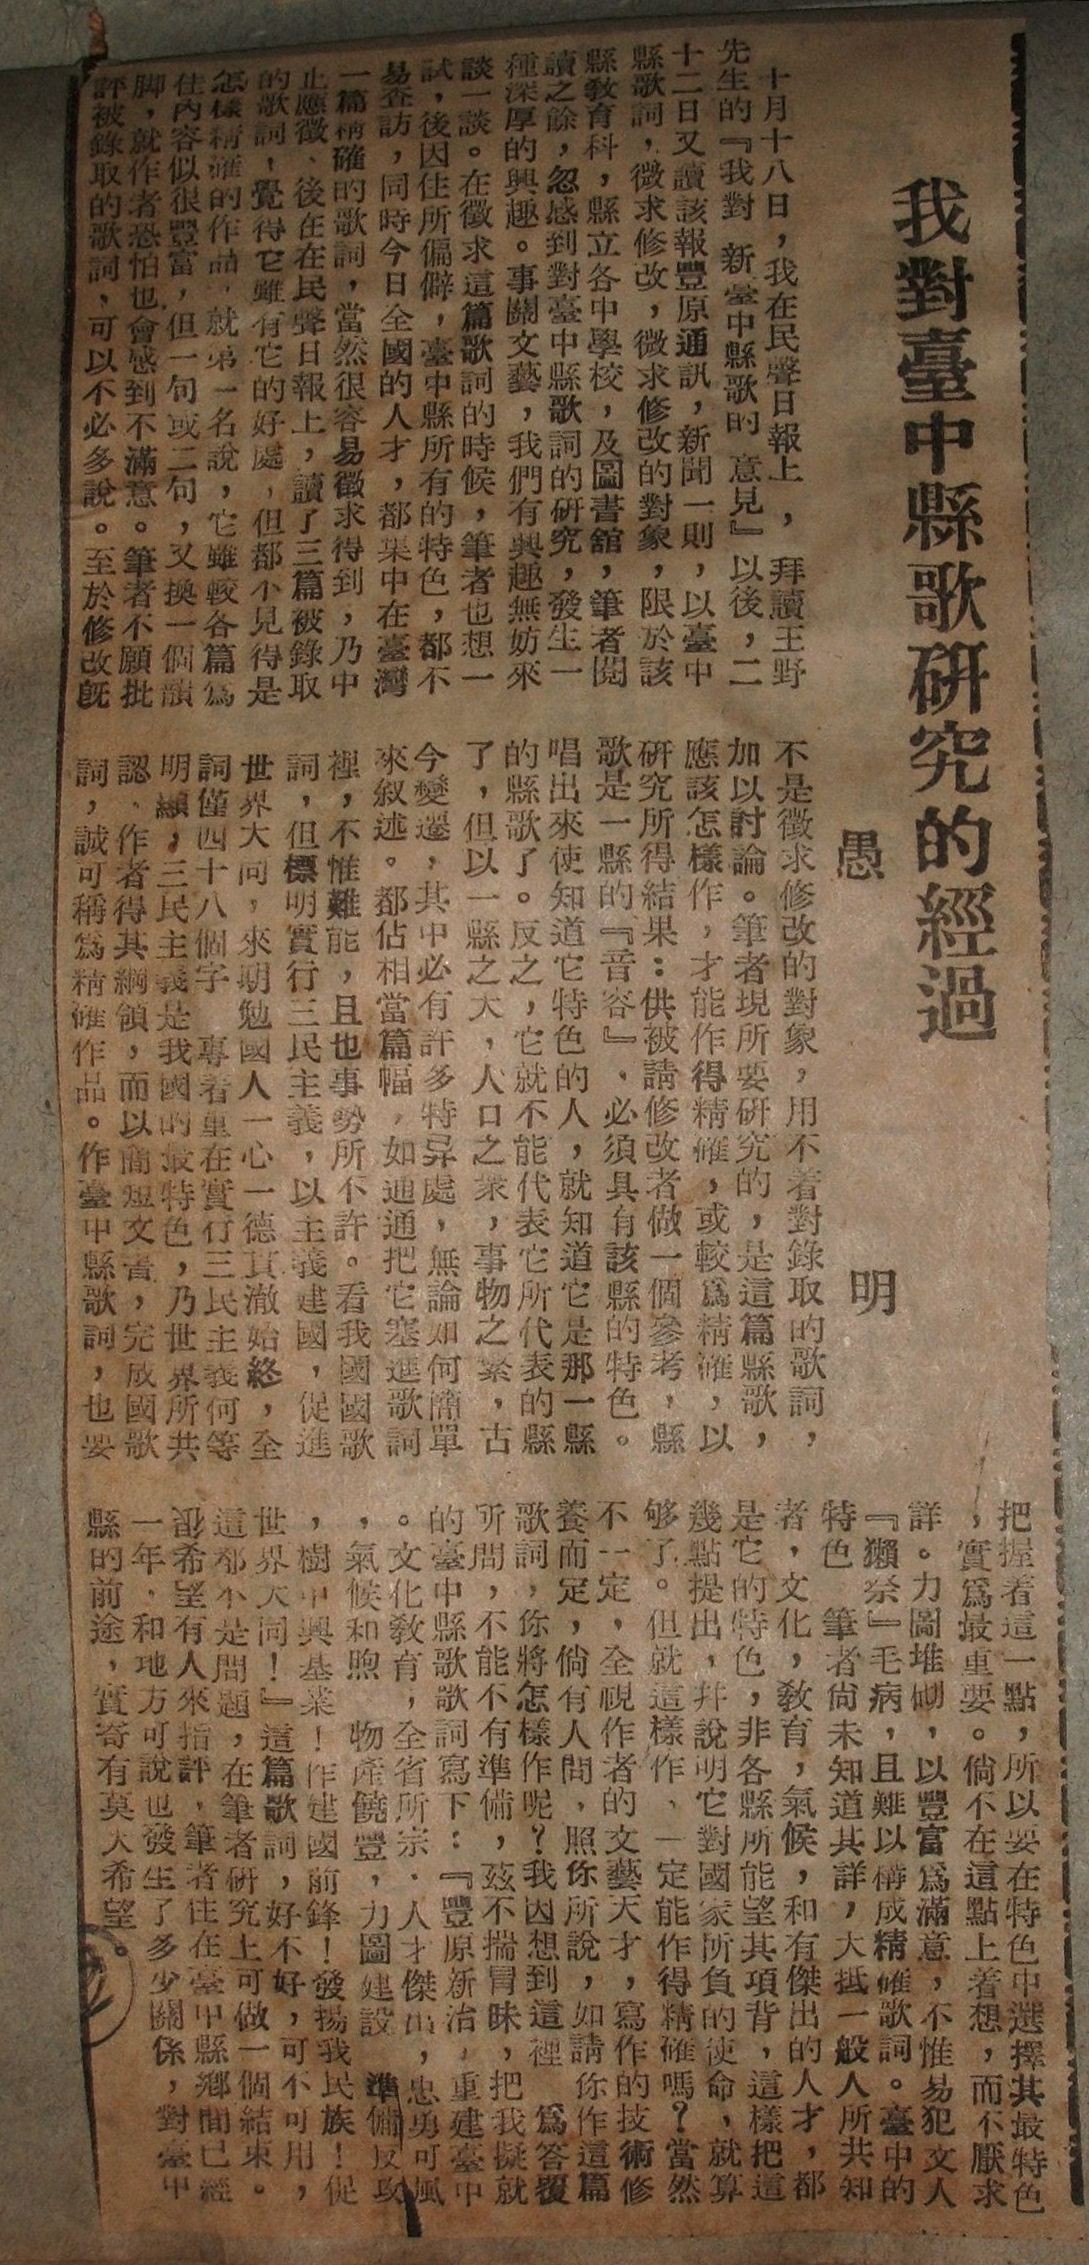 我對臺中縣歌研究的經過
愚明
十月十八日，我在民聲日報上，拜讀王野
先生的『我對　新臺中縣歌的　意見』以後，二
十二日又讀該報豐原通訊，新聞一則，以臺中
縣歌詞，徵求修改，徵求修改的對象，限於該
縣教育科，縣立各中學校，及圖書舘，筆者閱
讀之餘，忽感到對臺中縣歌詞的研究，發生一
種深厚的興趣。事關文藝，我們有興趣無妨來
談一談。在徵求這篇歌詞的時候，筆者也想一
試，後因住所偏僻，臺中縣所有的特色，都不
易查訪，同時今日全國的人才，都集中在臺灣
一篇精確的歌詞，當然很容易徵求得到，乃中
止應徵、後在在民聲日報上，讀了三篇被錄取
的歌詞，覺得它雖有它的好處，但都不見得是
怎樣精確的作品，就第一名說，它雖較各篇爲
佳內容似很豐富，但一句或二句，又換一個韻
脚，就作者恐怕也會感到不滿意。筆者不願批
評被錄取的歌詞，可以不必多說。至於修改旣
不是徵求修改的對象，用不着對錄取的歌詞，
加以討論。筆者現所要研究的，是這篇縣歌，
應該怎樣作，才能作得精確，或較爲精確，以
研究所得結果：供被請修改者做一個參考，縣
歌是一縣的『音容』、必須具有該縣的特色。
唱出來使知道它特色的人，就知道它是那一縣
的縣歌了。反之，它就不能代表它所代表的縣
了，但以一縣之大，人口之衆，事物之繁，古
今變遷，其中必有許多特异處，無論如何簡單
來叙述。都佔相當篇幅，如通通把它塞進歌詞
裡，不惟難能，且也事勢所不許。看我國國歌
詞，但標明實行三民主義，以主義建國，促進
世界大同，來朂勉國人一心一德貫澈始終，全
詞僅四十八個字　專着重在實行三民主義何等
明顯，三民主義是我國的最特色，乃世界所共
認、作者得其綱領，而以簡短文書，完成國歌
詞，誠可稱爲精確作品。作臺中縣歌詞，也要
把握着這一點，所以要在特色中選擇其最特色
，實爲最重要。倘不在這點上着想，而不厭求
詳。力圖堆砌，以豐富爲滿意，不惟易犯文人
『獺祭』毛病，且難以構成精確歌詞。臺中的
特色　筆者尙未知道其詳，大抵一般人所共知
者，文化，教育，氣候，和有傑出的人才，都
是它的特色，非各縣所能望其項背，這樣把這
幾點提出，幷說明它對國家所負的使命，就算
够了。但就這樣作、一定能作得精確嗎？當然
不一定，全視作者的文藝天才，寫作的技術修
養而定，倘有人問，照你所說，如請你作這篇
歌詞，你將怎樣作呢？我因想到這裡　爲答覆
所問，不能不有準備，茲不揣冒昧，把我擬就
的臺中縣歌歌詞寫下：『豐原新治，重建臺中
。文化教育，全省所宗、人才傑出，忠勇可風
，氣候和煦　物產饒豐，力圖建設　準備反攻
，樹中興基業！作建國前鋒！發揚我民族！促
世界大同！』這篇歌詞，好不好，可不可用，
這都不是問題，在筆者研究上可做一個結束。
卻希望有人來指評，筆者住在臺中縣鄕間已經
一年、和地方可說也發生了多少關係，對臺中
縣的前途，實寄有莫大希望